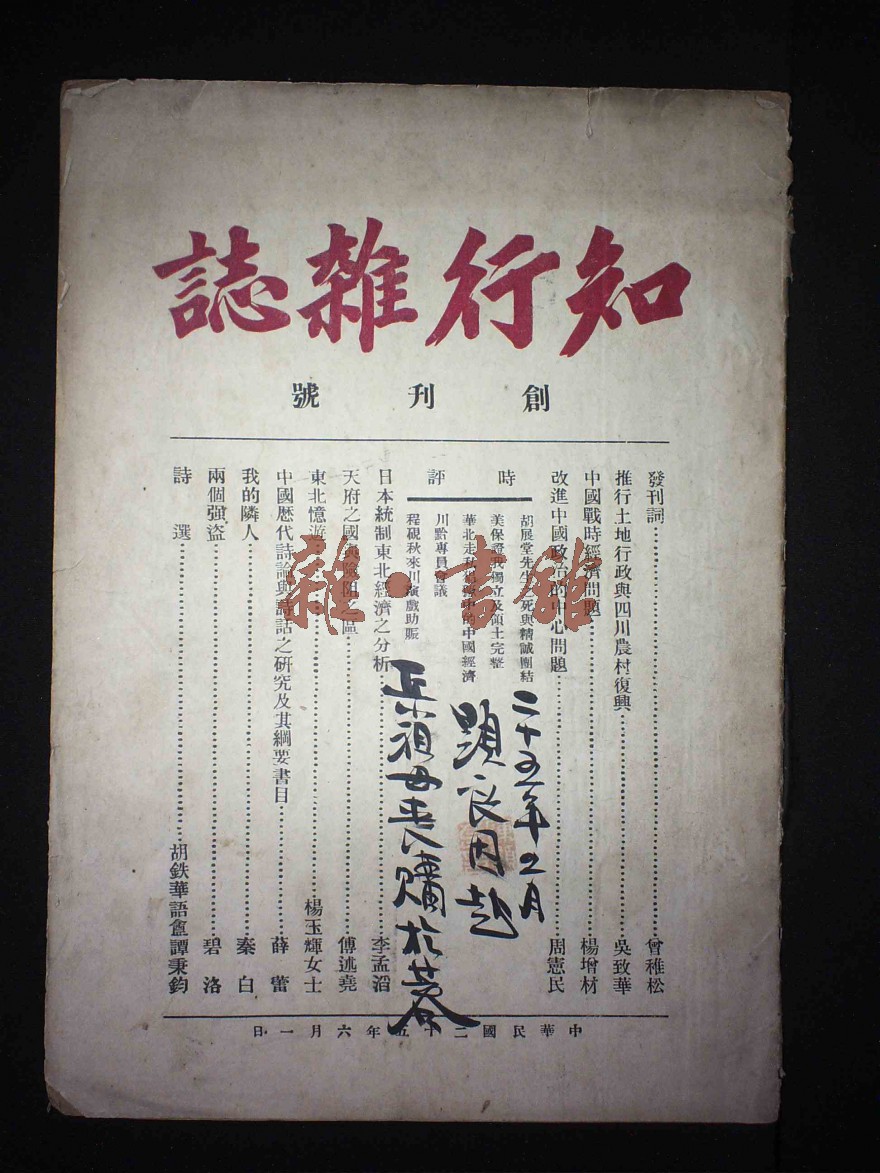 知行雜誌
創刊號
發刊詞 曾稚松
推行土地行政與四川農村復興 吳致華
中國戰時經濟問題 楊增材
改進中國政治的中心問題 周憲民
時評
胡展堂先生之死與精誠團結
美保證我獨立及領土完整
華北走私 中的中國經濟
川黔專員會議
程硯秋來川演戲助賑
日本統制東北經濟之分析 李孟滔
天府之國與 阻之區 傅述堯
東北憶遊 楊玉輝女士
中國歷代詩論與詩話之研究及其綱要書目 薛蕾
我的隣人 秦白
兩個强盗 碧洛
詩選 胡鉄華語盦譚秉鈞
中華民國二十五年六月一日
二十五年 月
顯良因赴
祖母喪購於蓉
雜·書館